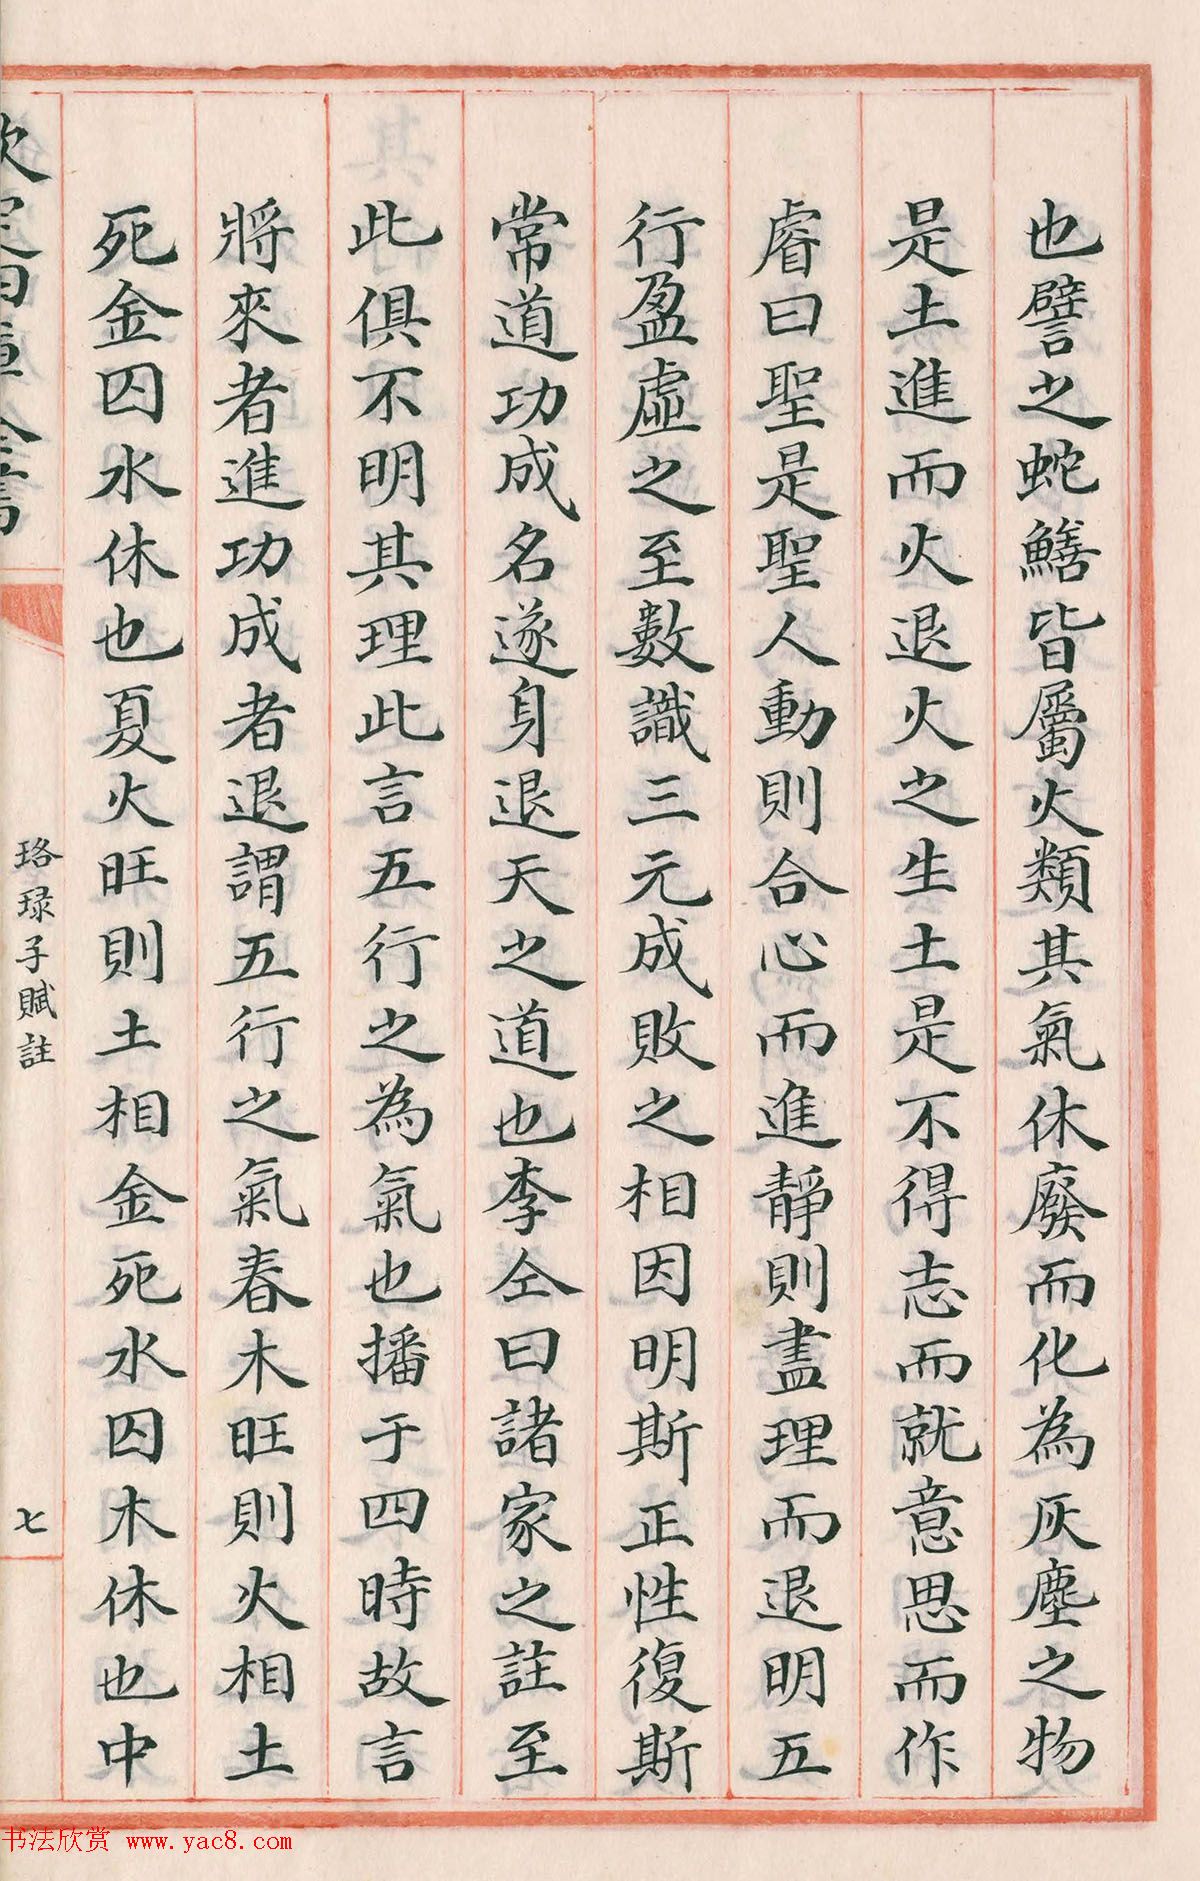 也譬之蛇鱔皆屬火類其氣休廢而化為灰塵之物
是土進而火退火之生土是不得志而就意思而作
睿曰聖是聖人動則合心而進靜則盡理而退明五
行盈虛之至數識三元成敗之相因明斯正性復斯
常道功成名遂身退天之道也李仝曰諸家之註至
此俱不明其理此言五行之為氣也播于四時故言
將來者進功成者退謂五行之氣春木旺則火相土
死金囚水休也夏火旺則土相金死水囚木休也中
欽定四庫全書
珞琭子賦註
七
书法欣赏 www.yac8.com